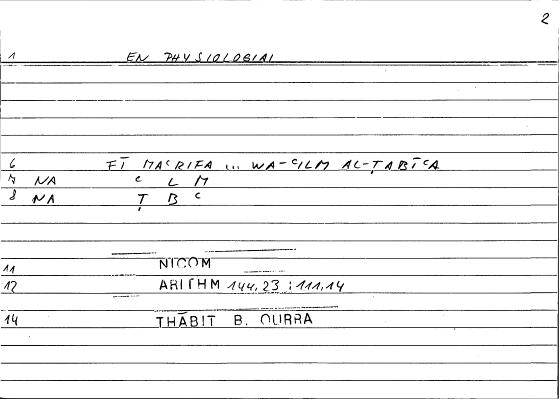 2
1 EN PHYSIOLOGIAI
6 FĪ MAʿRIFA ... WA-ʿILM AL-ṬABĪʿA
7 NA ʿ L M
8 NA Ṭ B ʿ
11 NICOM
12 ARITHM 144,23 : 111,14
14 THĀBIT B. QURRA